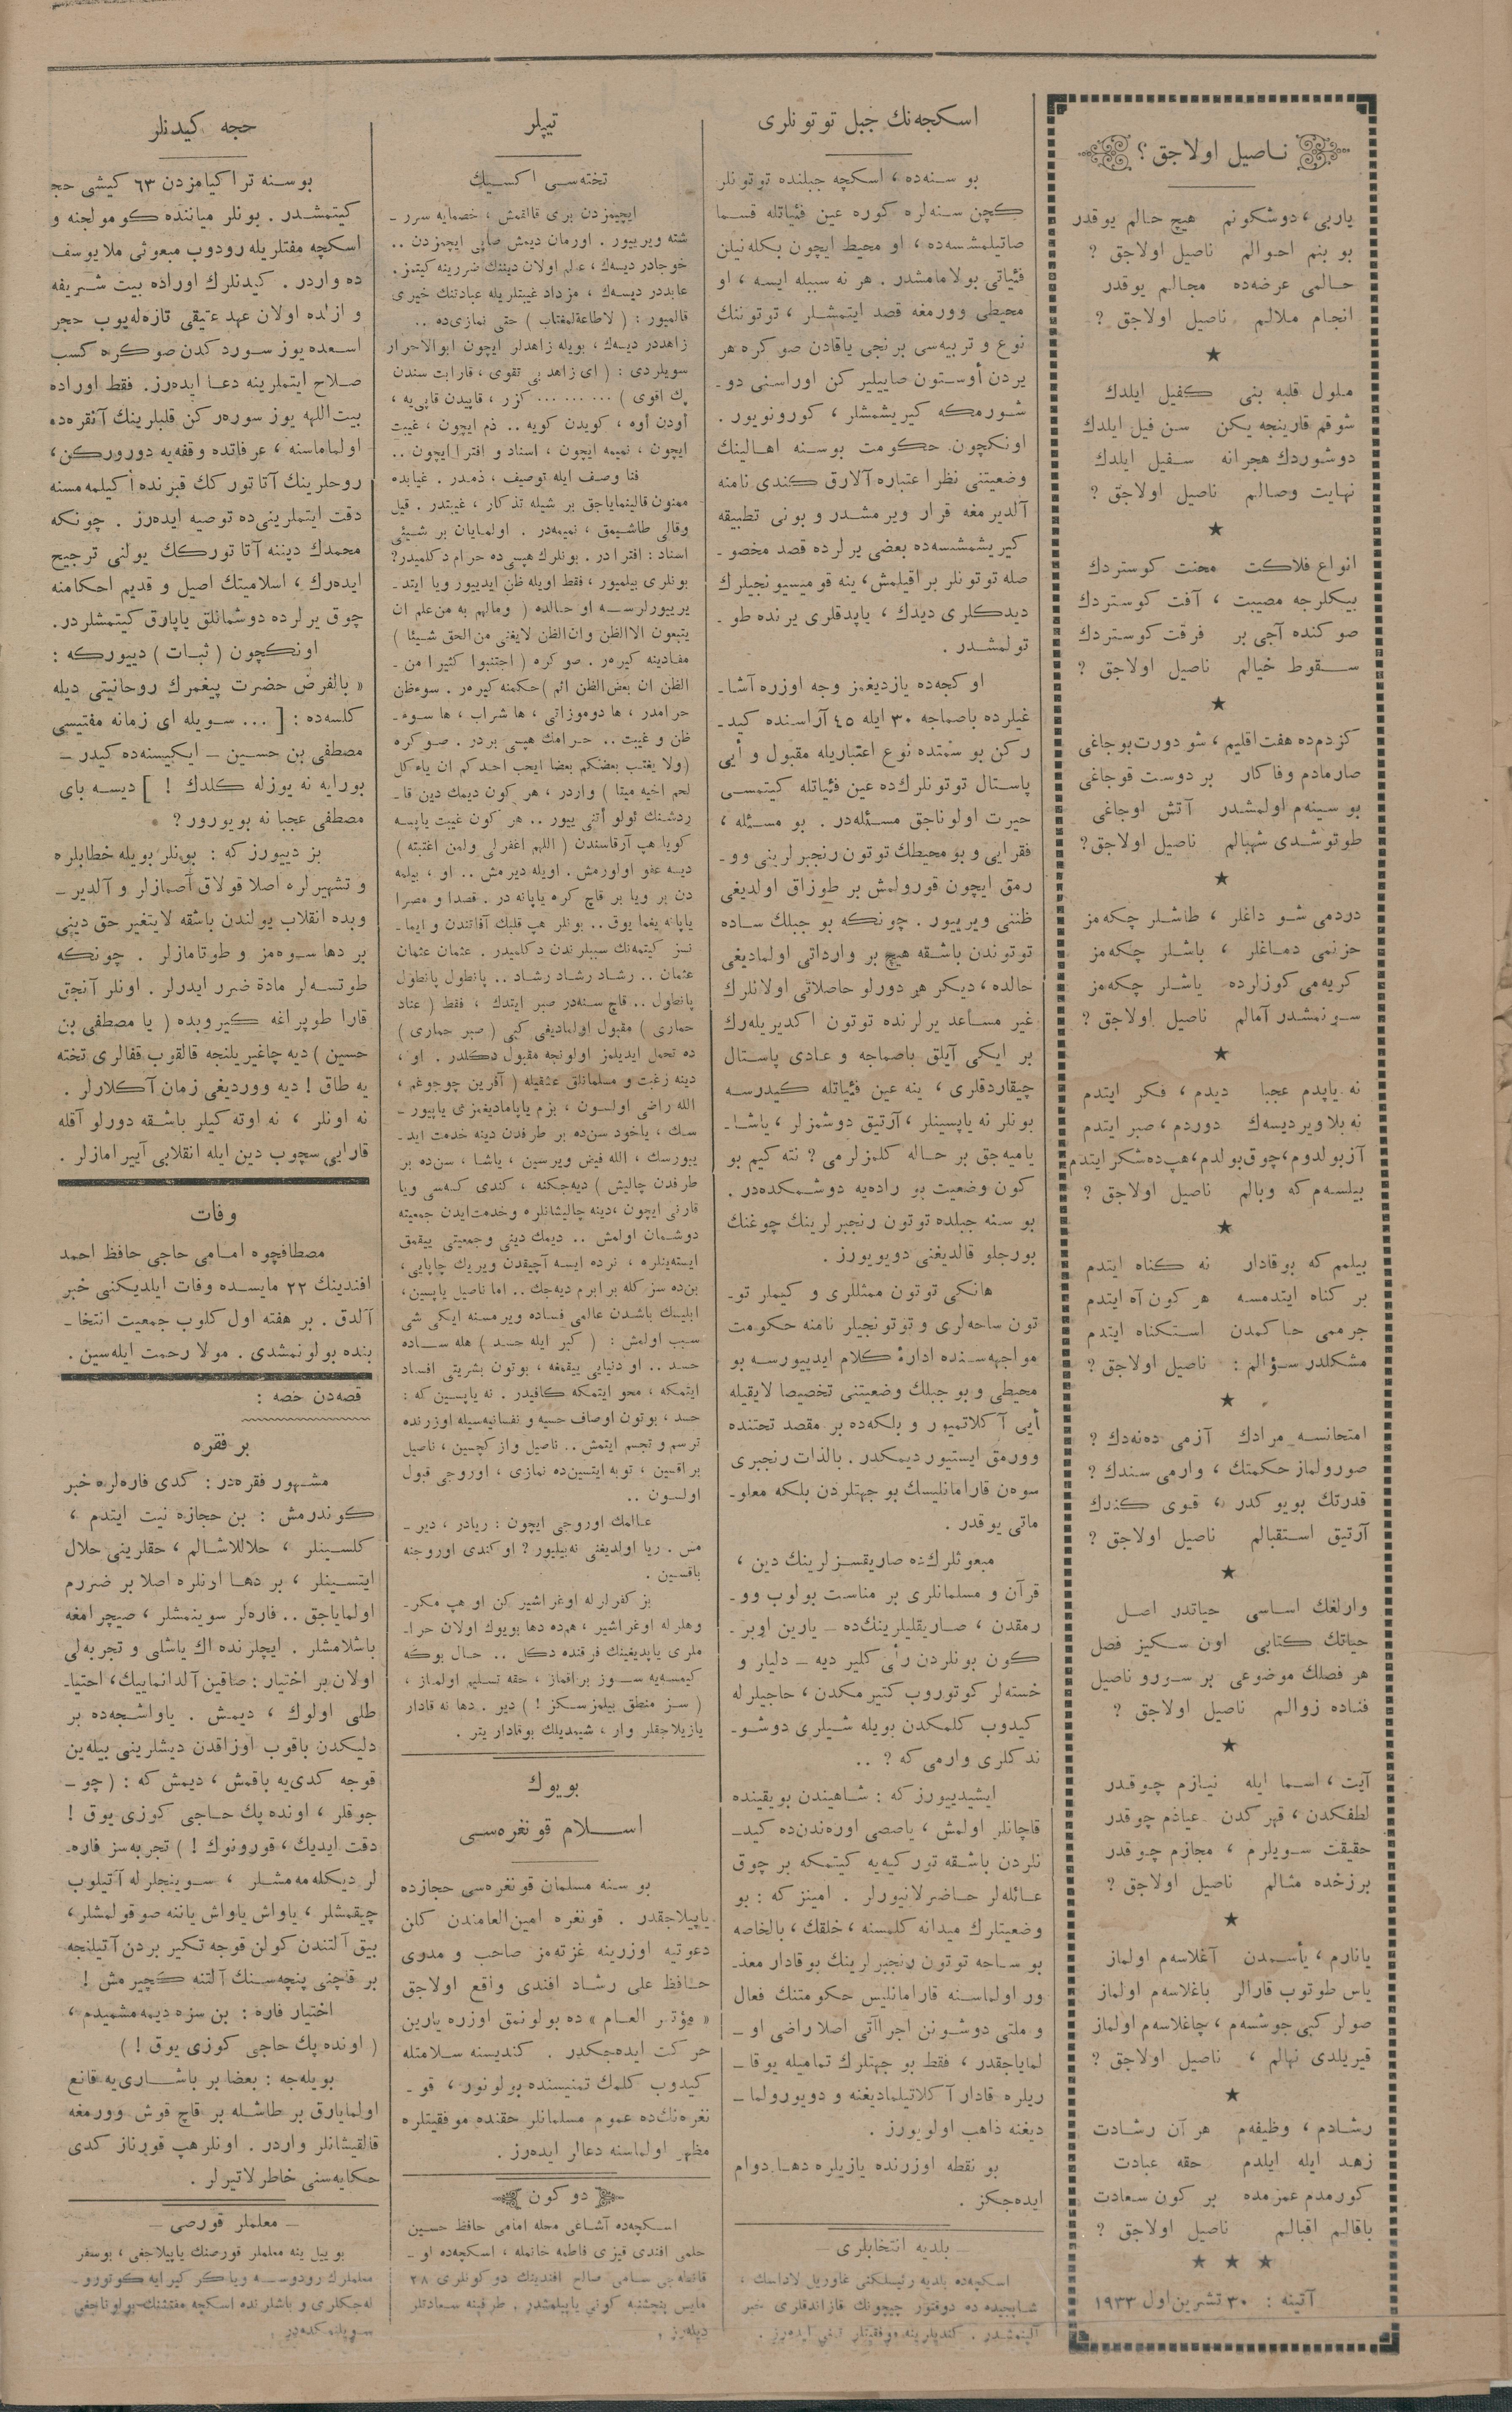 ناصیل اولاجق؟
یاربی، دوشكونم هیچ حالم یوقدر
بو بنم احوالم ناصیل اولاجق ؟
حالمی عرضه‌ده مجالم یوقدر
انجام ملالم ناصیل اولاجق ؟
★
ملول قلبه بنی كفیل ایلدك
شوقم قارینجه یكن سن فیل ایلدك
دوشوردك هجرانه سفیل ایلدك
نهایت وصالم ناصیل اولاجق ؟
★
انواع فلاكت محنت كوستردك
بیكلرجه مصیبت ، آفت كوستردك
صوكنده آجی بر فرقت كوستردك
سقوط خیالم ناصیل اولاجق ؟
★
كزدم‌ده هفت اقلیم، شو دورت بوجاغی
صارمادم وفاكار بر دوست قوجاغی
بو سینه‌م اولمشدر آتش اوجاغی
طوتوشدی شهبالم ناصیل اولاجق؟
★
دردمی شو داغلر ، طاشلر چكه‌مز
حزنمی دماغلر ، باشلر چكه‌مز
كریه‌می كوزلرده یاشلر چكه‌مز
سونمشدر آمالم ناصیل اولاجق ؟
★
نه یاپدم عجبا دیدم، فكر ایتدم
نه بلا ویردیسه‌ك دوردم، صبر ایتدم
آز بولدوم، چوق بولدم، هپ‌ده شكر ایتدم
بیلسه‌م كه وبالم ناصیل اولاجق ؟
★
بیلمم كه بوقادار نه كناه ایتدم
بر كناه ایتدمسه هر كون آه ایتدم
جرممی حاكمدن استكناه ایتدم
مشكلدر سؤالم: ناصیل اولاجق ؟
★
امتحانسه مرادك آزمی ده‌نه‌دك ؟
صورولماز حكمتك ، وارمی سندك ؟
قدرتك بویوكدر ، قوی كندك
آرتیق استقبالم ناصیل اولاجق ؟
★
وارلغك اساسی حیاتدر اصل
حیاتك كتابی اون سكیز فصل
هر فصلك موضوعی بر سورو ناصیل
فناده زوالم ناصیل اولاجق ؟
★
آیت ، اسما ایله نیازم چوقدر
لطفكدن ، قهركدن عیاذم چوقدر
حقیقت سویلرم ، مجازم چوقدر
برزخده مثالم ناصیل اولاجق ؟
★
یانارم ، یأسمدن آغلاسه‌م اولماز
یاس طوتوب قارالر باغلاسه‌م اولماز
صولر كبی جوشسه‌م ، چاغلاسه‌م اولماز
قیریلدی نهالم ، ناصیل اولاجق ؟
★
رشادم ، وظیفه‌م هر آن رشادت
زهد ایله ایلدم حقه عبادت
كورمدم عمرمده بر كون سعادت
باقالم اقبالم ناصیل اولاجق ؟
★ ★ ★
آتینه : ٣٠ تشرین اول ١٩٣٣
اسكجه‌نك جبل توتونلری
بو سنه‌ده ، اسكچه جبلنده توتونلر
كچن سنه‌لره كوره عین فئیاتله قسما
صاتیلمشسه‌ده ، او محیط ایچون بكله‌نیلن
فئیاتی بولامامشدر . هر نه سببله ایسه ، او
محیطی وورمغه قصد ایتمشلر ، توتوننك
نوع و تربیه‌سی برنجی یاقادن صوكره هر
یردن أوستون صاییلیر كن اوراسنی دو-
شورمكه كیریشمشلر ، كورونویور .
اونكچون حكومت بوسنه اهالینك
وضعیتنی نظر اعتباره آلارق كندی نامنه
آلدیرمغه قرار ویرمشدر و بونی تطبیقه
كیریشمشسه‌ده بعضی یرلرده قصد مخصو-
صله توتونلر براقیلمش، ینه قومیسیونجیلرك
دیدكلری دیدك ، یاپدقلری یرنده طو-
تولمشدر .
اوكجه‌ده یازدیغمز وجه اوزره آشا-
غیلرده باصماجه ٣٠ ایله ٤٥ آراسنده كید-
ركن بو سمتده نوع اعتباریله مقبول و أیی
پاستال توتونلرك‌ده عین فئیاتله كیتمسی
حیرت اولوناجق مسئله‌در . بو مسئله ،
فقرایی و بو محیطك توتون رنجبرلرینی وو-
رمق ایچون قورولمش بر طوزاق اولدیغی
ظننی ویرییور . چونكه بو جبلك ساده
توتوندن باشقه هیچ بر وارداتی اولمادیغی
حالده ، دیكر هر دورلو حاصلاتی اولانلرك
غیر مساعد یرلرنده توتون اكدیریله‌رك
بر ایكی آیلق باصماجه و عادی پاستال
چیقاردقلری ، ینه عین فئیاتله كیدرسه
بونلر نه یاپسینلر ، آرتیق دوشمزلر ، یاشا-
یامیه‌جق بر حاله كلمزلرمی ؟ نته كیم بو
كون وضعیت بو راده‌یه دوشمكده‌در .
بو سنه جبلده توتون رنجبرلرینك چوغنك
بورجلو قالدیغنی دویویورز .
هانكی توتون ممثللری و كیملر تو-
تون ساحه‌لری و توتونجیلر نامنه حكومت
مواجهه‌سنده ادارهٔ كلام ایدییورسه بو
محیطی و بو جبلك وضعیتنی تخصیصا لایقیله
أیی آكلاتمیور و بلكه‌ده بر مقصد تحتنده
وورمق ایستیور دیمكدر. بالذات رنجبری
سوه‌ن قارامانلیسك بو جهتلردن بلكه معلو-
ماتی یوقدر .
مبعوثلرك‌ده صاریقسزلرینك دین ،
قرآن و مسلمانلری بر مناسبت بولوب وو-
رمقدن ، صاریقلیلرینك‌ده ـ یارین اوبر-
كون بونلردن رأی كلیر دیه ـ دلیلر و
خسته‌لر كوتوروب كتیرمكدن ، حاجیلرله
كیدوب كلمكدن بویله شیلری دوشو-
ندكلری وارمی كه ؟ ..
ایشیدییورز كه : شاهیندن بو یقینده
قاچانلر اولمش ، یاصصی اوره‌ندن‌ده كید-
نلردن باشقه توركیه‌یه كیتمكه بر چوق
عائله‌لر حاضرلانیورلر . امینز كه : بو
وضعیتلرك میدانه كلمسنه ، خلقك ، بالخاصه
بو ساحه توتون رنجبرلرینك بوقادار معذ-
ور اولماسنه قارامانلیس حكومتنك فعال
و ملتی دوشونن اجراآتی اصلا راضی او-
لمایاجقدر ، فقط بو جهتلرك تمامیله یوقا-
ریلره قادار آكلاتیلمادیغنه و دویورولما-
دیغنه ذاهب اولویورز .
بو نقطه اوزرنده یازیلره دها دوام
ایده‌جكز .
ـ بلدیه انتخابلری ـ
اسكچه‌ده بلدیه رئیسلكنی غاوریل لاداسك ،
شاپجیده ده دوقتور چیچونك قازاندقلری خبر
آلینمشدر . كندیلرینه موفقیتلر تمنی ایده‌رز .
تیپلر
تخته‌سی اكسیك
ایچیمزدن بری قالقمش ، خصمایه سرر-
شته ویرییور . اورمان دیمش صاپی ایچمزدن ..
خوجادر دیسه‌ك ، علم اولان دیننك ضررینه كیتمز .
عابددر دیسه‌ك ، مزداد غیبتلریله عبادتنك خیری
قالمیور : ( لاطاعة‌لمغتاب ) حتی نمازی‌ده ..
زاهددر دیسه‌ك ، بویله زاهدلر ایچون ابوالاحرار
سویلردی : ( ای زاهد بی تقوی ، قارابت سندن
پك اقوی ) ... ... ... كزر ، قاپیدن قاپی‌یه ،
أودن أوه ، كویدن كویه .. ذم ایچون ، غیبت
ایچون ، نمیمه ایچون ، اسناد و افترا ایچون ..
فنا وصف ایله توصیف ، ذمدر . غیابده
ممنون قالینمایاجق بر شیله تذكار ، غیبتدر . قیل
وقالی طاشیمق ، نمیمه‌در . اولمایان بر شیئی
اسناد : افترادر . بونلرك هپسی‌ده حرام دكلمیدر؟
بونلری بیلمیور ، فقط اویله ظن ایدییور ویا ایتد-
یرییورلرسه او حالده ( ومالهم به من‌علم ان
یتبعون الاالظن وان‌الظن لایغنی من‌الحق شیئا )
مفادینه كیره‌ر . صوكره ( اجتنبوا كثیرا من-
الظن ان بعض‌الظن اثم ) حكمنه كیره‌ر . سوءظن
حرامدر ، ها دوموزاتی ، ها شراب ، ها سوء-
ظن و غیبت .. حرامك هپسی بردر . صوكره
(ولا یغتب بعضكم بعضا ایحب احدكم ان یاءكل
لحم اخیه میتا ) واردر ، هر كون دیمك دین قا-
ردشنك ئولو أتنی ییور .. هر كون غیبت یاپسه
كویا هپ آرقاسندن ( اللهم اغفرلی ولمن اغتبته )
دیسه عفو اولورمش . اویله دیرمش .. او ، بیلمه
دن بر ویا بر قاچ كره یاپانه در . قصدا و مصرا
یاپانه یغما یوق .. بونلر هپ قلبك آفاتندن و ایما-
نسز كیتمه‌نك سببلرندن دكلمیدر . عثمان عثمان
عثمان .. رشاد رشاد رشاد .. پانطول پانطول
پانطول .. قاچ سنه‌در صبر ایتدك ، فقط ( عناد
حماری ) مقبول اولمادیغی كبی ( صبر حماری )
ده تحمل ایدیلمز اولونجه مقبول دكلدر . او ،
دینه رغبت و مسلمانلق عشقیله ( آفرین چوجوغم ،
الله راضی اولسون ، بزم یاپامادیغمزی یاپیور-
سك ، یاخود سن‌ده بر طرفدن دینه خدمت اید-
ییورسك ، الله فیض ویرسین ، یاشا ، سن‌ده بر
طرفدن چالیش ) دیه‌جكنه ، كندی كسه‌سی ویا
قارنی ایچون ،دینه چالیشانلره وخدمت‌ایدن جمعیته
دوشمان اولمش .. دیمك دینی وجمعیتی ییقمق
ایسته‌ینلره ، نرده ایسه آچیقدن ویریك چاپایی،
بن‌ده سزكله برابرم دیه‌جك .. اما ناصیل یاپسین،
ابلیسك باشدن عالمی فساده ویرمسنه ایكی شی
سبب اولمش : ( كبر ایله حسد ) هله ساده
حسد .. او دنیایی ییقمغه ، بوتون بشریتی افساد
ایتمكه ، محو ایتمكه كافیدر . نه یاپسین كه :
حسد ، بوتون اوصاف حسیه و نفسانیه‌سیله اوزرنده
ترسم و تجسم ایتمش .. ناصیل واز كچسین ، ناصیل
براقسین ، توبه ایتسین‌ده نمازی ، اوروجی قبول
اولسون ..
عالمك اوروجی ایچون : ریادر ، دیر-
مش . ریا اولدیغنی نه‌بیلیور ؟ او كندی اوروجنه
باقسین .
بز كفرلرله اوغراشیركن او هپ مكر-
وهلرله اوغراشیر ، هم‌ده دها بویوك اولان حرا-
ملری یاپدیغینك فرقنده دكل .. حال بوكه
كیمسه‌یه سوز براقماز ، حقه تسلیم اولماز ،
( سز منطق بیلمزسكز ! ) دیر . دها نه قادار
یازیلاجقلر وار ، شیمدیلك بوقادار یتر .
بویوك
اسلام قونغره‌سی
بو سنه مسلمان قونغره‌سی حجازده
یاپیلاجقدر . قونغره امین‌العامندن كلن
دعوتیه اوزرینه غزته‌مز صاحب و مدوی
حافظ علی رشاد افندی واقع اولاجق
« مؤتمر العام » ده بولونمق اوزره یارین
حركت ایده‌جكدر . كندیسنه سلامتله
كیدوب كلمك تمنیسنده بولونور ، قو-
نغره‌نك‌ده عموم مسلمانلر حقنده موفقیتلره
مظهر اولماسنه دعالر ایده‌رز .
دوكون
اسكچه‌ده آشاغی محله امامی حافظ حسین
حلمی افندی قیزی فاطمه خانمله ، اسكچه‌ده او-
قاتطه‌جی سامی صالح افندینك دوكونلری ٢٨
مایس پنچشنبه كونی یاپیلمشدر . طرفینه سعادتلر
دیله‌رز .
حجه كیدنلر
بو سنه تراكیامزدن ٦٣ كیشی حج
كیتمشدر . بونلر میاننده كومولجنه و
اسكچه مفتلریله رودوب مبعوثی ملا یوسف
ده واردر . كیدنلرك اوراده بیت شریفه
و ازلده اولان عهد عتیقی تازه‌له‌یوب حجر
اسعده یوز سوردكدن صوكره كسب
صلاح ایتملرینه دعا ایده‌رز. فقط اوراده
بیت‌الله یوز سوره‌ركن قلبلرینك آنقره‌ده
اولماماسنه ، عرفاتده وقفه‌یه دوروركن ،
روحلرینك آتاتوركك قبرنده أكیلمه‌مسنه
دقت ایتملرینی‌ده توصیه ایده‌رز . چونكه
محمدك دیننه آتاتوركك یولنی ترجیح
ایده‌رك ، اسلامیتك اصیل و قدیم احكامنه
چوق یرلرده دوشمانلق یاپارق كیتمشلردر.
اونكچون ( ثبات ) دییوركه :
« بالفرض حضرت پیغمبرك روحانیتی دیله
كلسه‌ده : [ ... سویله ای زمانه مفتیسی
مصطفی بن حسین ـ ایكیسنه‌ده كیدر ـ
بورایه نه یوزله كلدك ! ] دیسه بای
مصطفی عجبا نه بویورور ؟
بز دییورز كه : بونلر بویله خطابلره
و تشهیرلره اصلا قولاق آصمازلر و آلدیر-
وبده انقلاب یولندن باشقه لایتغیر حق دینی
بر دها سوه‌مز و طوتامازلر . چونكه
طوتسه‌لر مادة ضرر ایدرلر . اونلر آنجق
قارا طوپراغه كیروبده ( یا مصطفی بن
حسین ) دیه چاغیریلنجه قالقوب قفالری تخته
یه طاق ! دیه ووردیغی زمان آكلارلر .
نه اونلر ، نه اوته كیلر باشقه دورلو آقله
قارایی سچوب دین ایله انقلابی آییرامازلر .
وفات
مصطافچوه امامی حاجی حافظ احمد
افندینك ٢٢ مایسده وفات ایلدیكنی خبر
آلدق . بر هفته اول كلوب جمعیت انتخا-
بنده بولونمشدی . مولا رحمت ایله‌سین .
قصه‌دن حصه :
بر فقره
مشهور فقره‌در : كدی فاره‌لره خبر
كوندرمش : بن حجازه نیت ایتدم ،
كلسینلر ، حلاللاشالم ، حقلرینی حلال
ایتسینلر ، بر دها اونلره اصلا بر ضررم
اولمایاجق .. فاره‌لر سوینمشلر ، صیچرامغه
باشلامشلر . ایچلرنده اك یاشلی و تجربه‌لی
اولان بر اختیار : صاقین آلدانمایىك ، احتیا-
طلی اولوك ، دیمش . یاواشجه‌ده بر
دلیكدن باقوب اوزاقدن دیشلرینی بیله‌ین
قوجه كدی‌یه باقمش ، دیمش كه : ( چو-
جوقلر ، اونده پك حاجی كوزی یوق !
دقت ایدیك ، قورونوك ! ) تجربه‌سز فاره-
لر دیكله‌مه‌مشلر ، سوینجلرله آتیلوب
چیقمشلر ، یاواش یاواش یاننه صوقولمشلر ،
بیق آلتندن كولن قوجه تكیر بردن آتیلنجه
بر قاچنی پنچه‌سنك آلتنه كچیرمش !
اختیار فاره : بن سزه دیمه‌مشمیدم ،
( اونده پك حاجی كوزی یوق ! )
بویله‌جه : بعضا بر باشاری‌یه قانع
اولمایارق بر طاشله بر قاچ قوش وورمغه
قالقیشانلر واردر . اونلر هپ قورناز كدی
حكایه‌سنی خاطرلاتیرلر .
ـ معلملر قورصی ـ
بو ییل ینه معلملر قورصنك یاپیلاجغی ، بوسفر
معلملرك رودوسه ویا كیرایه كوتورو-
له‌جكلری و باشلرنده اسكچه مفتشنك بولوناجغی
سویلنمكده‌در .